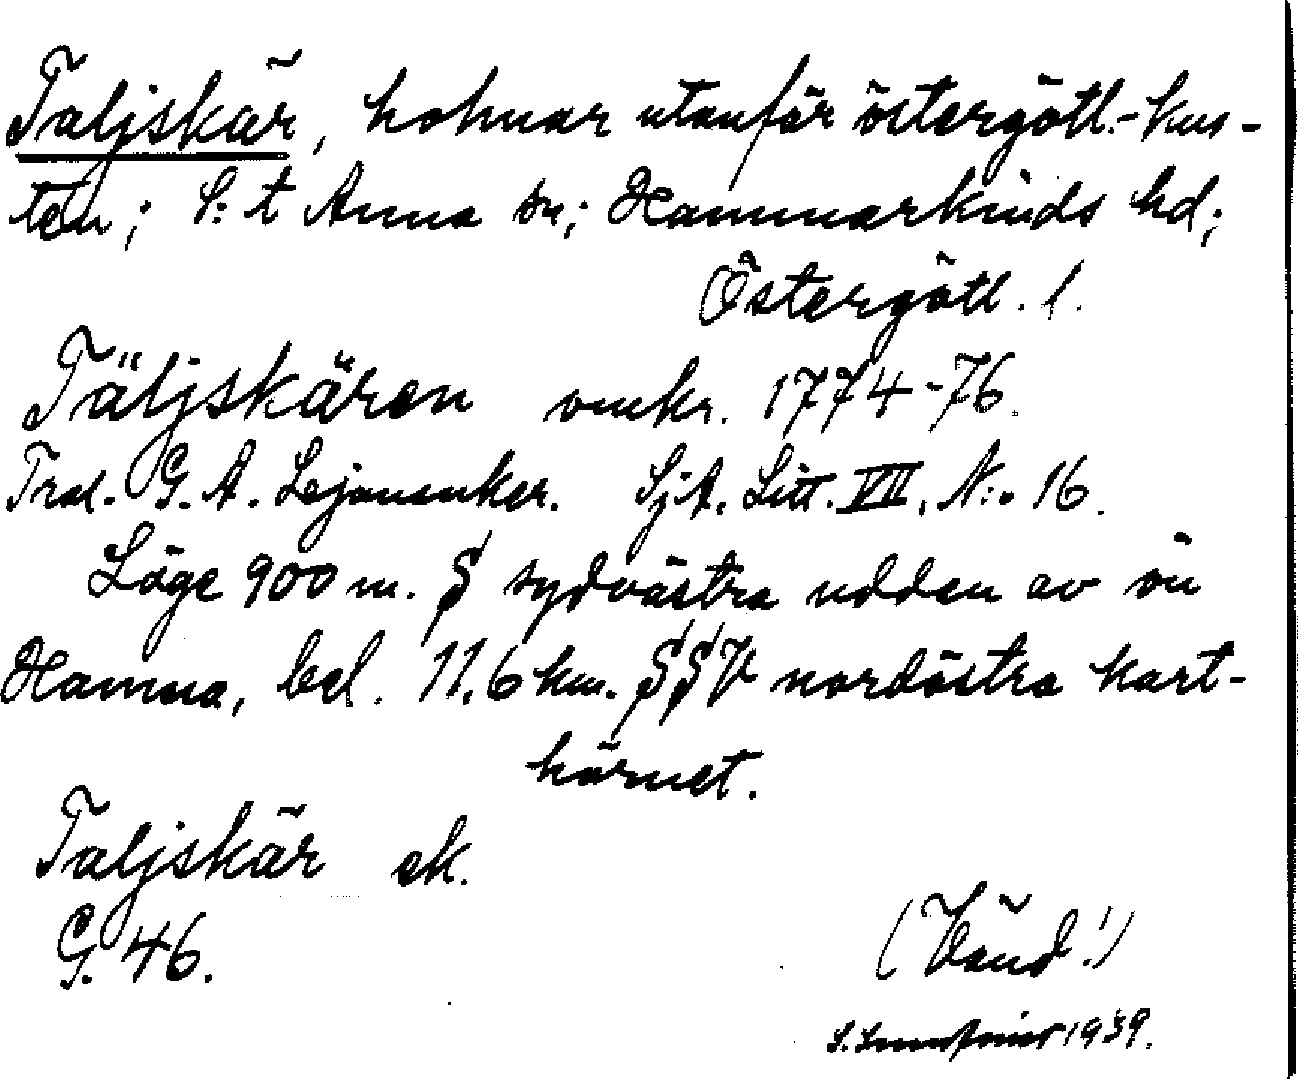 Taljskär, holmar utanför östergötl.-kus-
ten; S:t Anna sn; Hammarkinds hd;
Östergötl. l.
Täljskären omkr. 1774-76.
Trol. G. A. Lejonanker. SjA. Litt. VII, N:o 16.
Läge 900 m. S sydvästra udden av ön
Hamna, bel. 11,6 km. SSV nordöstra kart-
hörnet.
Taljskär ek.
G. 46.
(Vänd!)
S. 1939.